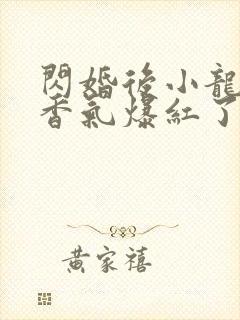 閃婚後小龍
香氣爆紅了
黃家禧